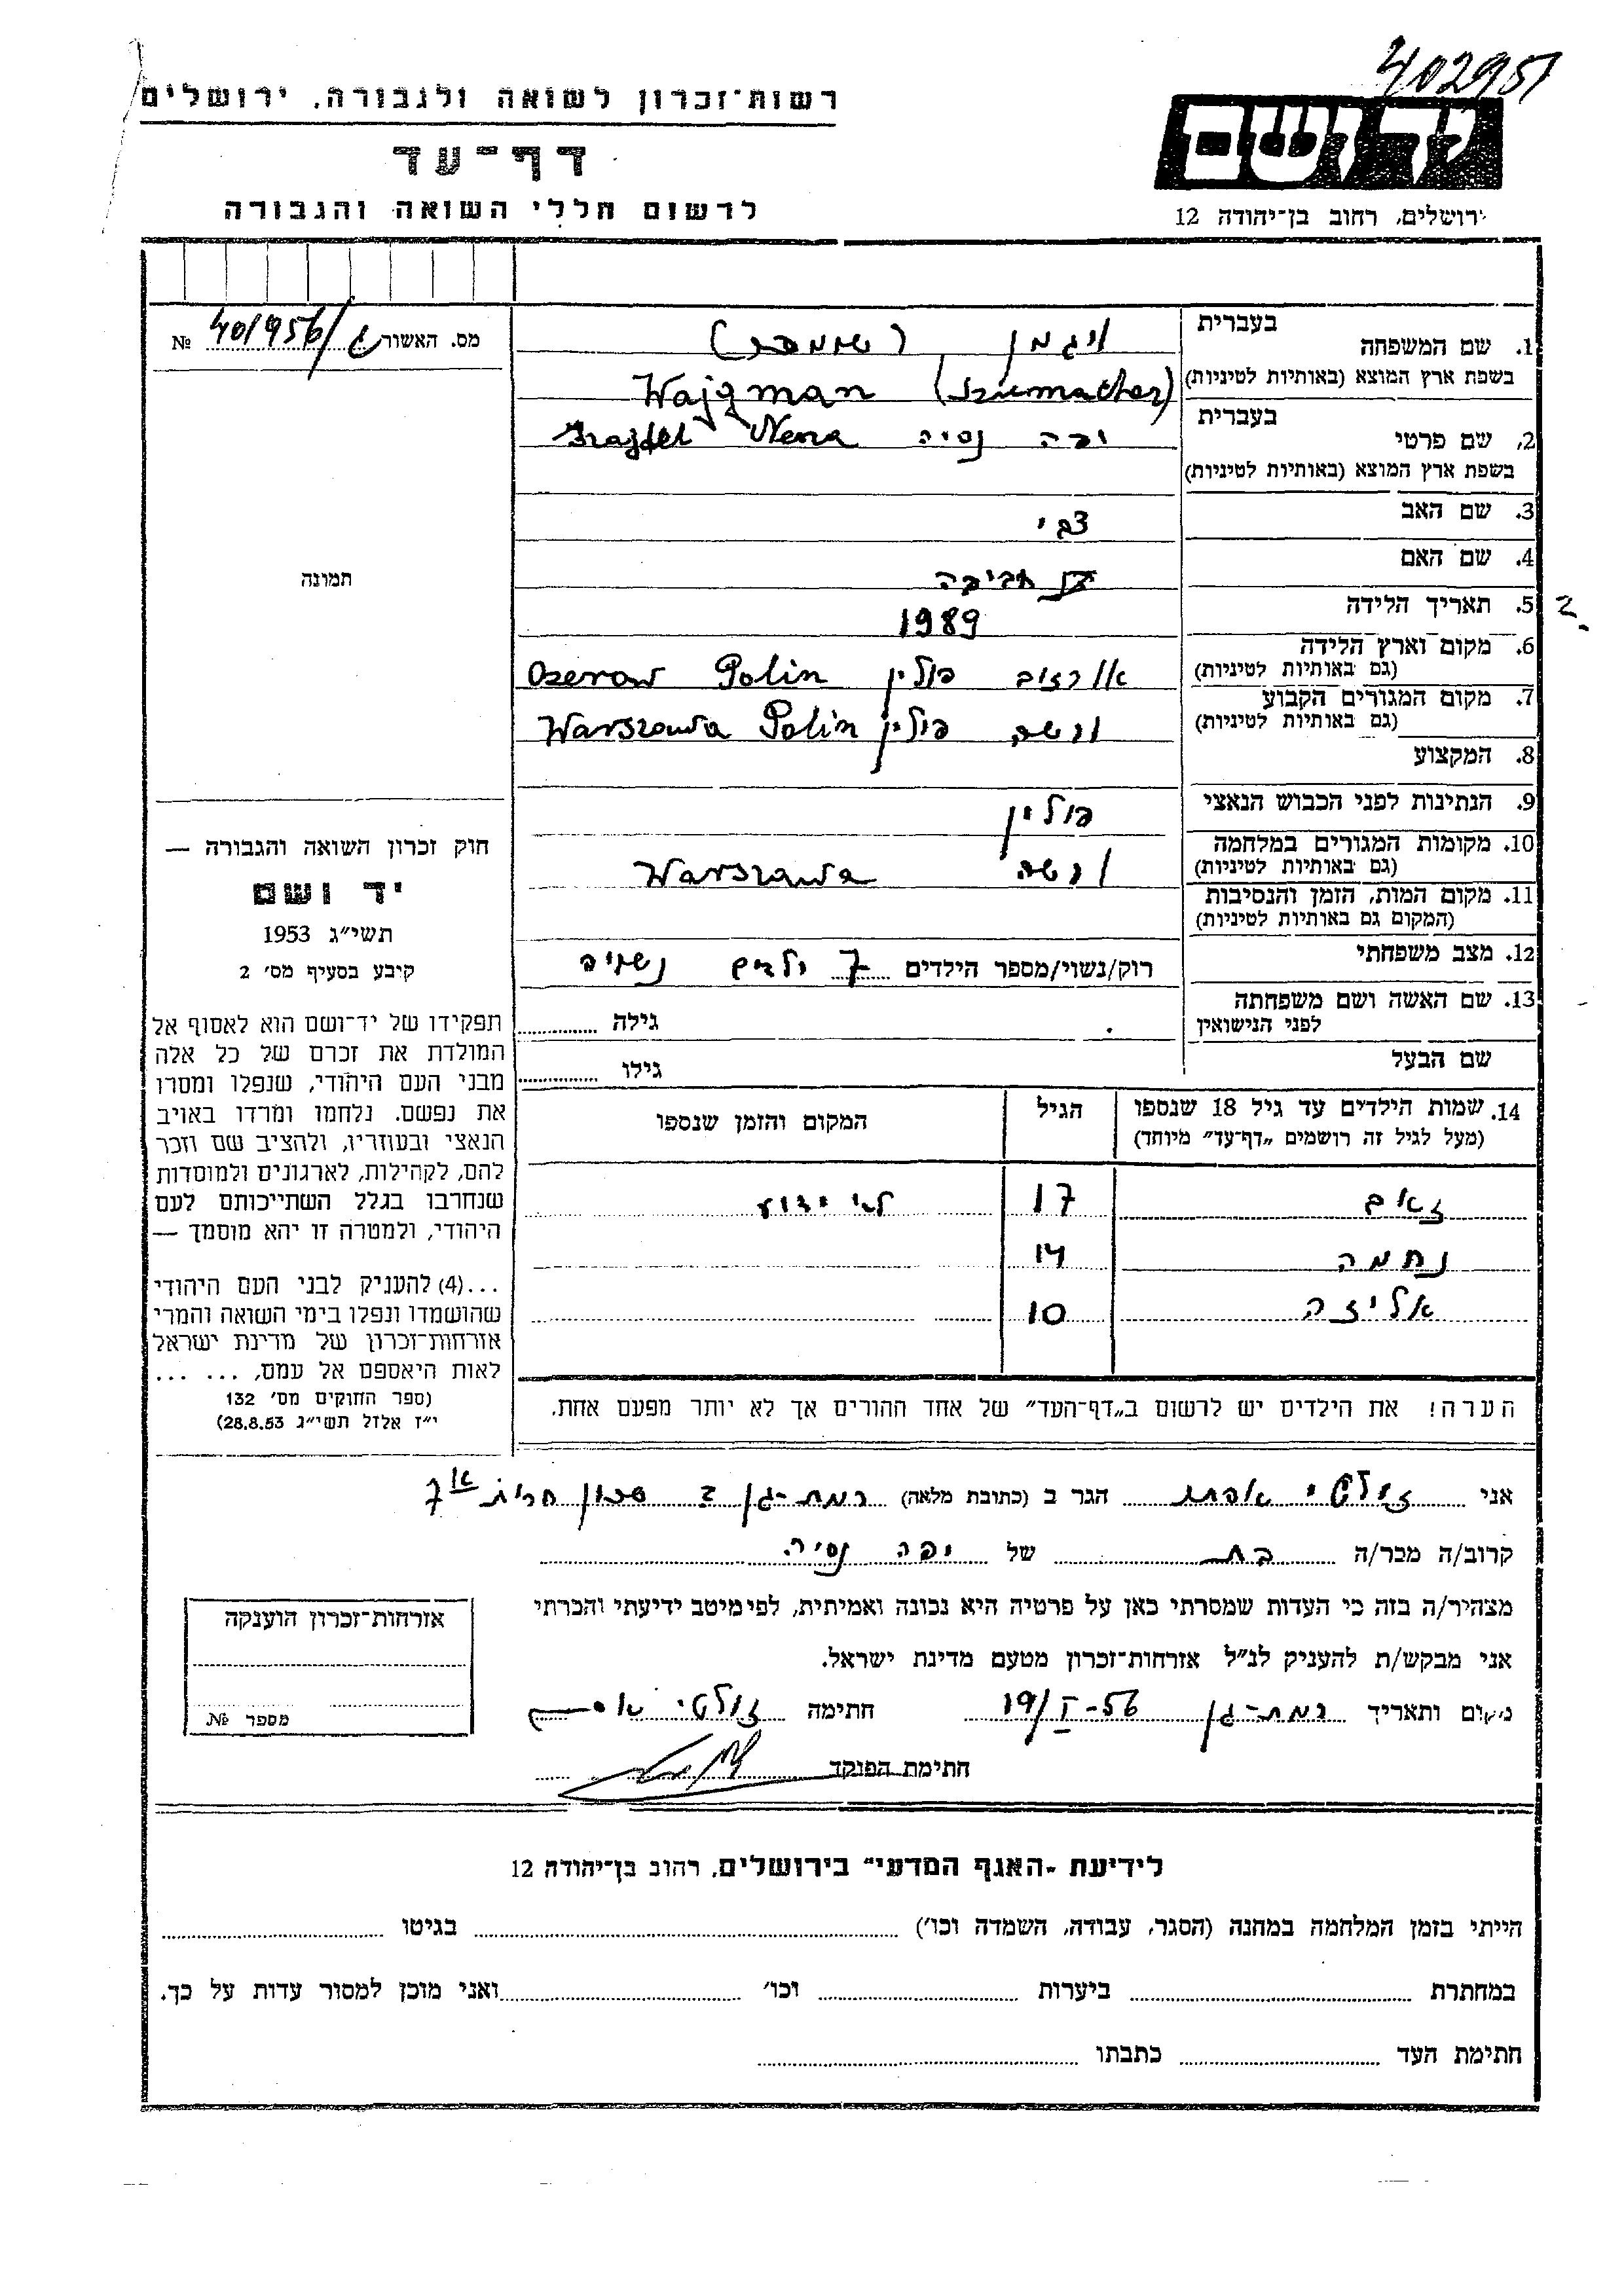 402951
רשות-זכרון לשואה ולגבורה, ירושלים
דף-עד
לרשום חללי השואה והגבורה
יד ושם
ירושלים, רחוב בן-יהודה 12
מס. האשור 401956/ № 
תמונה
1. שם המשפחה בעברית ויגמן (שומכר)
בשפת ארץ המוצא (באותיות לטיניות) Wajgman (Szumacher)
2. שם פרטי בעברית יפה נסיה Nena
בשפת ארץ המוצא (באותיות לטיניות)
3. שם האב צבי
4. שם האם אביבה
5. תאריך הלידה 1989
6. מקום וארץ הלידה (גם באותיות לטיניות) פולין Ozerow Polin
7. מקום המגורים הקבוע (גם באותיות לטיניות) ורשה פולין Warszawa Polin
8. המקצוע
9. הנתינות לפני הכבוש הנאצי פולין
10. מקומות המגורים במלחמה (גם באותיות לטיניות) ורשה Warszawa
11. מקום המות, הזמן והנסיבות (המקום גם באותיות לטיניות)
12. מצב משפחתי רוק/נשוי/מספר הילדים 7 ילדים נשויה
13. שם האשה ושם משפחתה לפני הנישואין גילה
שם הבעל גילו
14. שמות הילדים עד גיל 18 שנספו (מעל לגיל זה רושמים "דף-עד" מיוחד) הגיל המקום והזמן שנספו
זאב 17 לא ידוע
נחמה 14
אליזה 10
הערה! את הילדים יש לרשום ב"דף-העד" של אחד ההורים אך לא יותר מפעם אחת.
חוק זכרון השואה והגבורה —
יד ושם
תשי"ג 1953
קיבע בסעיף מס' 2
תפקידו של יד-ושם הוא לאסוף אל
המולדת את זכרם של כל אלה
מבני העם היהודי, שנפלו ומסרו
את נפשם. נלחמו ומרדו באויב
הנאצי ובעוזריו, ולהציב שם וזכר
להם, לקהילות, לארגונים ולמוסדות
שנחרבו בגלל השתייכותם לעם
היהודי, ולמטרה זו יהא מוסמך —
...(4) להעניק לבני העם היהודי
שהושמדו ונפלו בימי השואה והמרי
אזרחות-זכרון של מדינת ישראל
לאות היאספם אל עמם, ... ...
(ספר החוקים מס' 132
י"ז אלול תשי"ג 28.8.53)
אני זולטי הגר ב (כתובת מלאה) רמת-גן שכון 7
קרוב/ה מכר/ה בת של יפה נסיה
מצהיר/ה בזה כי העדות שמסרתי כאן על פרטיה היא נכונה ואמיתית, לפי מיטב ידיעתי והכרתי
אני מבקש/ת להעניק לנ"ל אזרחות-זכרון מטעם מדינת ישראל.
מקום ותאריך רמת-גן 19/I-56 חתימה זולטי
חתימת הפוקד
אזרחות-זכרון הוענקה
מספר №
לידיעת "האגף המדעי" בירושלים, רחוב בן-יהודה 12
הייתי בזמן המלחמה במחנה (הסגר, עבודה, השמדה וכו') בגיטו
במחתרת ביערות וכו' ואני מוכן למסור עדות על כך.
חתימת העד כתבתו